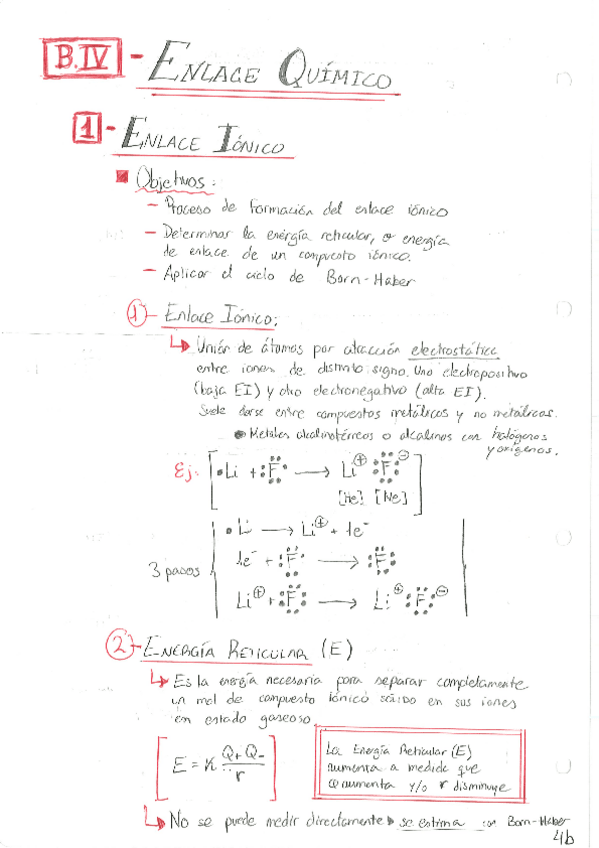 B.IV - ENLACE QUÍMICO
1 - ENLACE IÓNICO
Objetivos:
- Proceso de formación del enlace iónico
- Determinar la energía reticular, o energía
de enlace de un compuesto iónico.
- Aplicar el ciclo de Born-Haber
1 - Enlace Iónico:
↳ Unión de átomos por atracción electrostática
entre iones de distinto signo. Uno electropositivo
(baja EI) y otro electronegativo (alta EI).
Suele darse entre compuestos metálicos y no metálicos.
• Metales alcalinotérreos o alcalinos con halógenos
y oxígenos.
Ej. •Li + :F: → Li⊕ :F:⊖
[He] [Ne]
3 pasos
•Li → Li⊕ + 1e⁻
1e⁻ + :F: → :F:
Li⊕ + :F:⊖ → Li⊕ :F:⊖
2 - ENERGÍA RETICULAR (E)
↳ Es la energía necesaria para separar completamente
un mol de compuesto iónico sólido en sus iones
en estado gaseoso.
E = K Q+ Q- / r
La Energía Reticular (E)
aumenta a medida que
Q aumenta y/o r disminuye
↳ No se puede medir directamente → se estima con Born-Haber